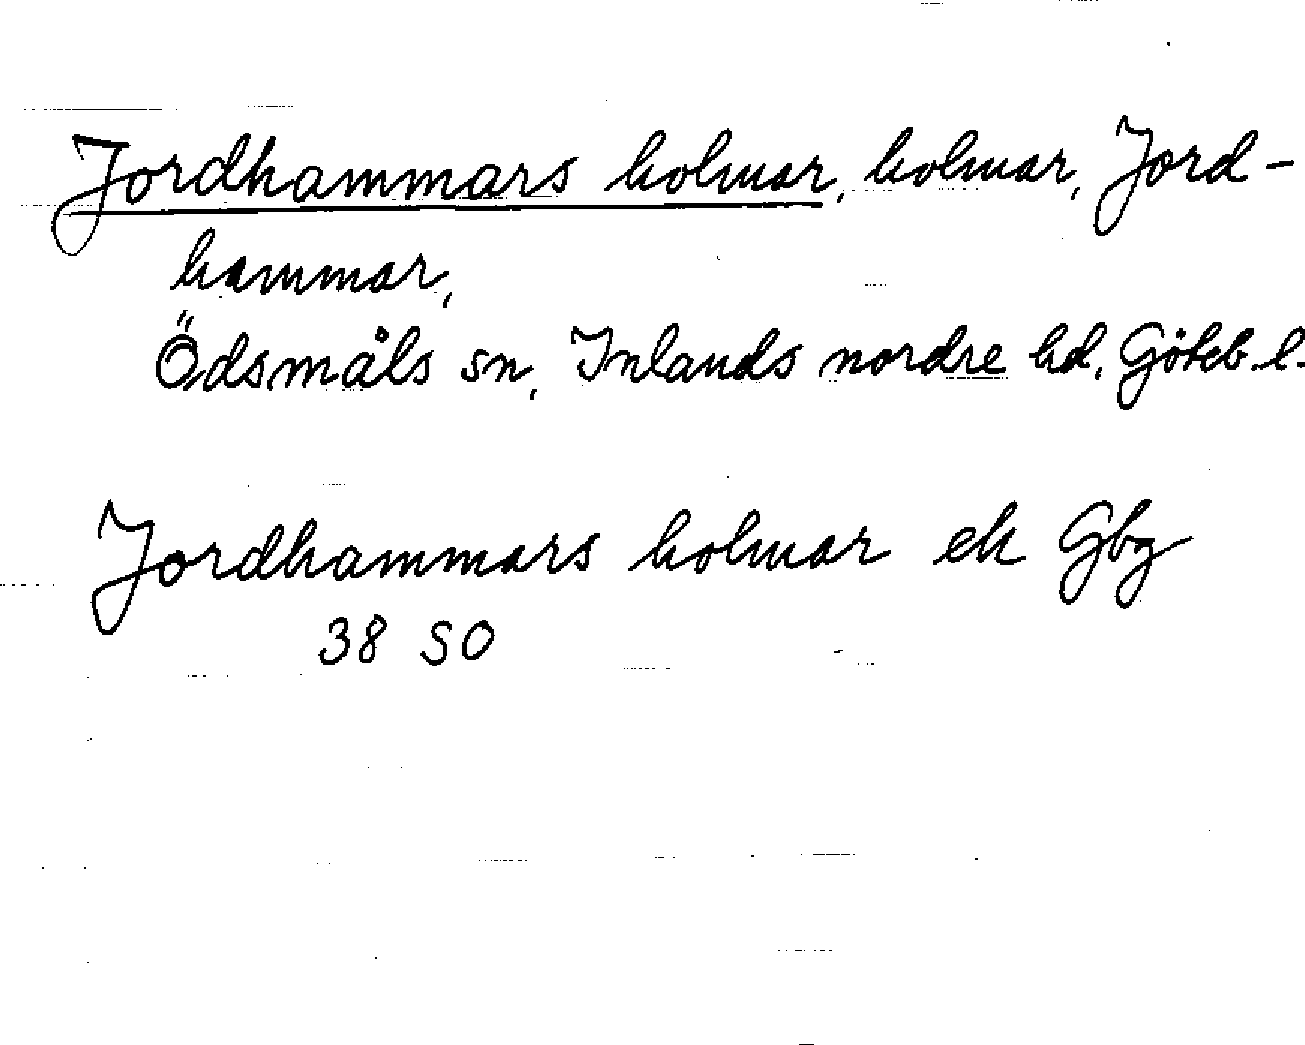 Jordhammars holmar, holmar, Jord-
hammar,
Ödsmåls sn, Inlands nordre hd, Göteb. l.
Jordhammars holmar ek Gbg
38 SO